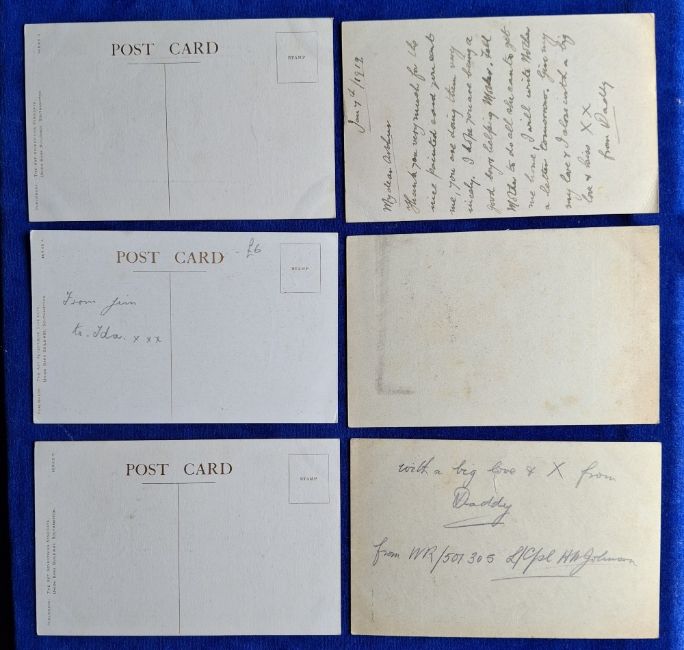 POST CARD
STAMP
Jan 7th/1919
My dear Arthur
Thank you very much for the
nice painted card you sent
me, you are doing them very
nicely. I hope you are being a
good boy & helping Mother. Tell
Mother to do all she can to get
me home, I will write Mother
a letter tomorrow. Give my
my love & I close with a big
love & kiss X X
from Daddy
POST CARD
- £6
STAMP
From Jim
to. Ida. x x x
POST CARD
STAMP
with a big love & X from
Daddy
from WR/501305 L/Cpl HW Johnson